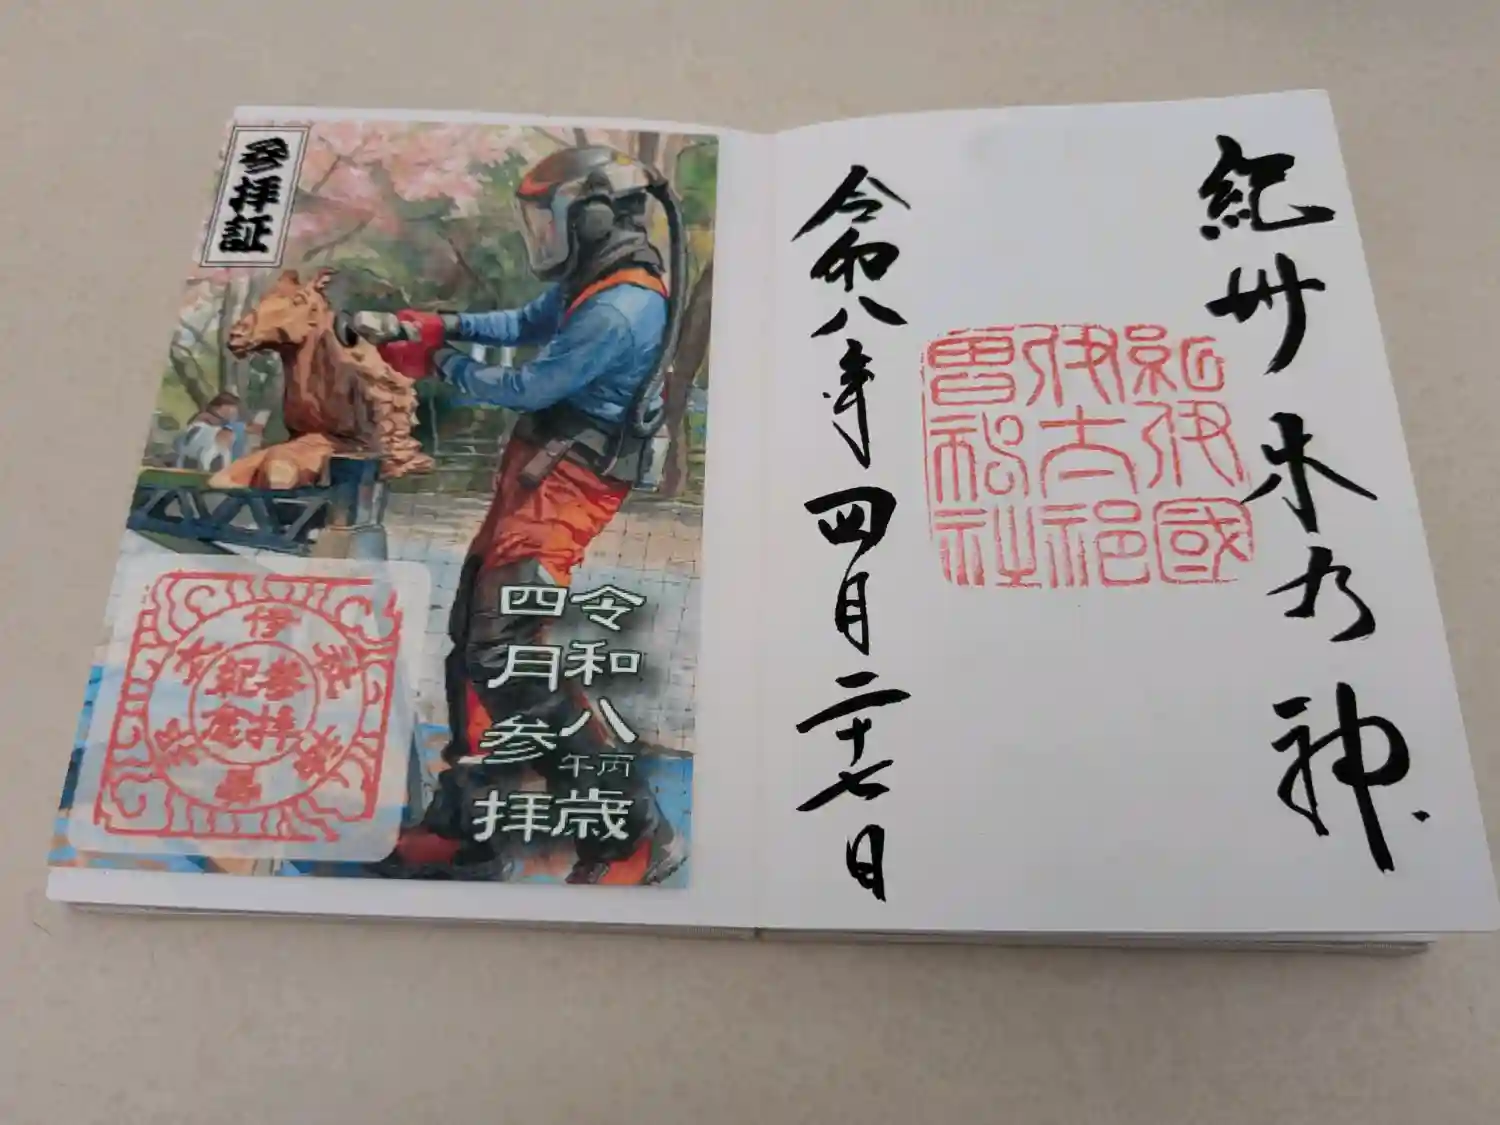 紀州木乃神
紀伊國
伊太祁
曽神社
令和八年四月二十七日
参拝証
令和八丙午歳
四月参拝
伊太祁曽神社
参拝
記念